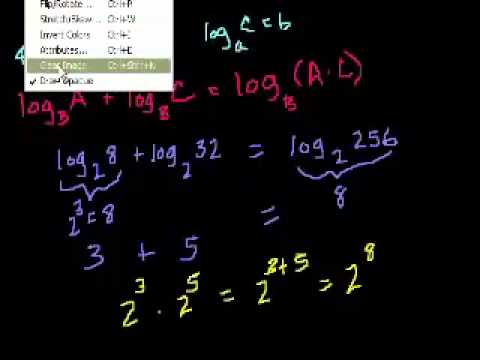 Flip/Rotate... Ctrl+R
Stretch/Skew... Ctrl+W
Invert Colors Ctrl+I
Attributes... Ctrl+E
Clear Image Ctrl+Shft+N
✓ Draw Opaque
log_a c = b
log_B A + log_B C = log_B (A · C)
log_2 8 + log_2 32 = log_2 256
2^3 = 8
8
3 + 5 =
2^3 · 2^5 = 2^{3+5} = 2^8